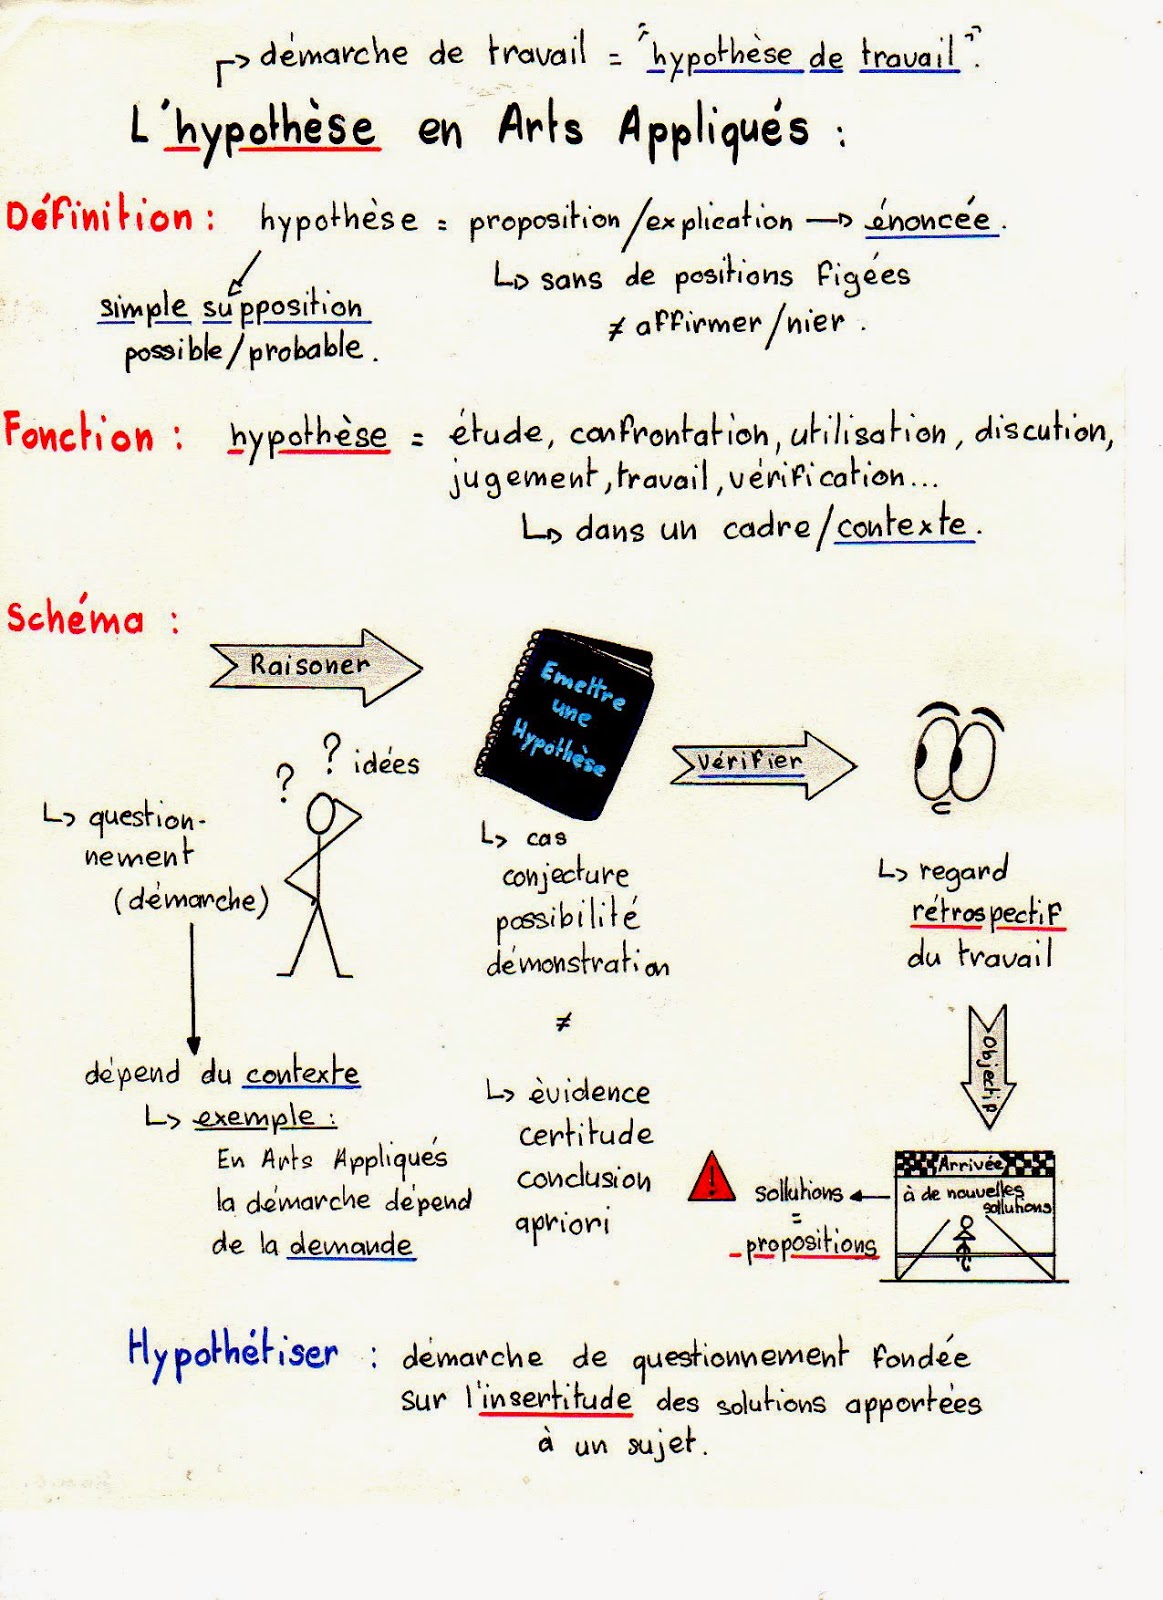 démarche de travail = "hypothèse de travail".
L'hypothèse en Arts Appliqués :
Définition : hypothèse = proposition/explication → énoncée.
↳ sans de positions figées
≠ affirmer/nier.
simple supposition
possible/probable.
Fonction : hypothèse = étude, confrontation, utilisation, discution,
jugement, travail, vérification...
↳ dans un cadre/contexte.
Schéma :
Raisoner
? ? idées
↳ question-
nement
(démarche)
dépend du contexte
↳ exemple :
En Arts Appliqués
la démarche dépend
de la demande
Emettre
une
Hypothèse
↳ cas
conjecture
possibilité
démonstration
≠
↳ èvidence
certitude
conclusion
apriori
Vérifier
↳ regard
rétrospectif
du travail
Objectif
Arrivée
à de nouvelles
sollutions
!
sollutions
=
propositions
Hypothétiser : démarche de questionnement fondée
sur l'insertitude des solutions apportées
à un sujet.